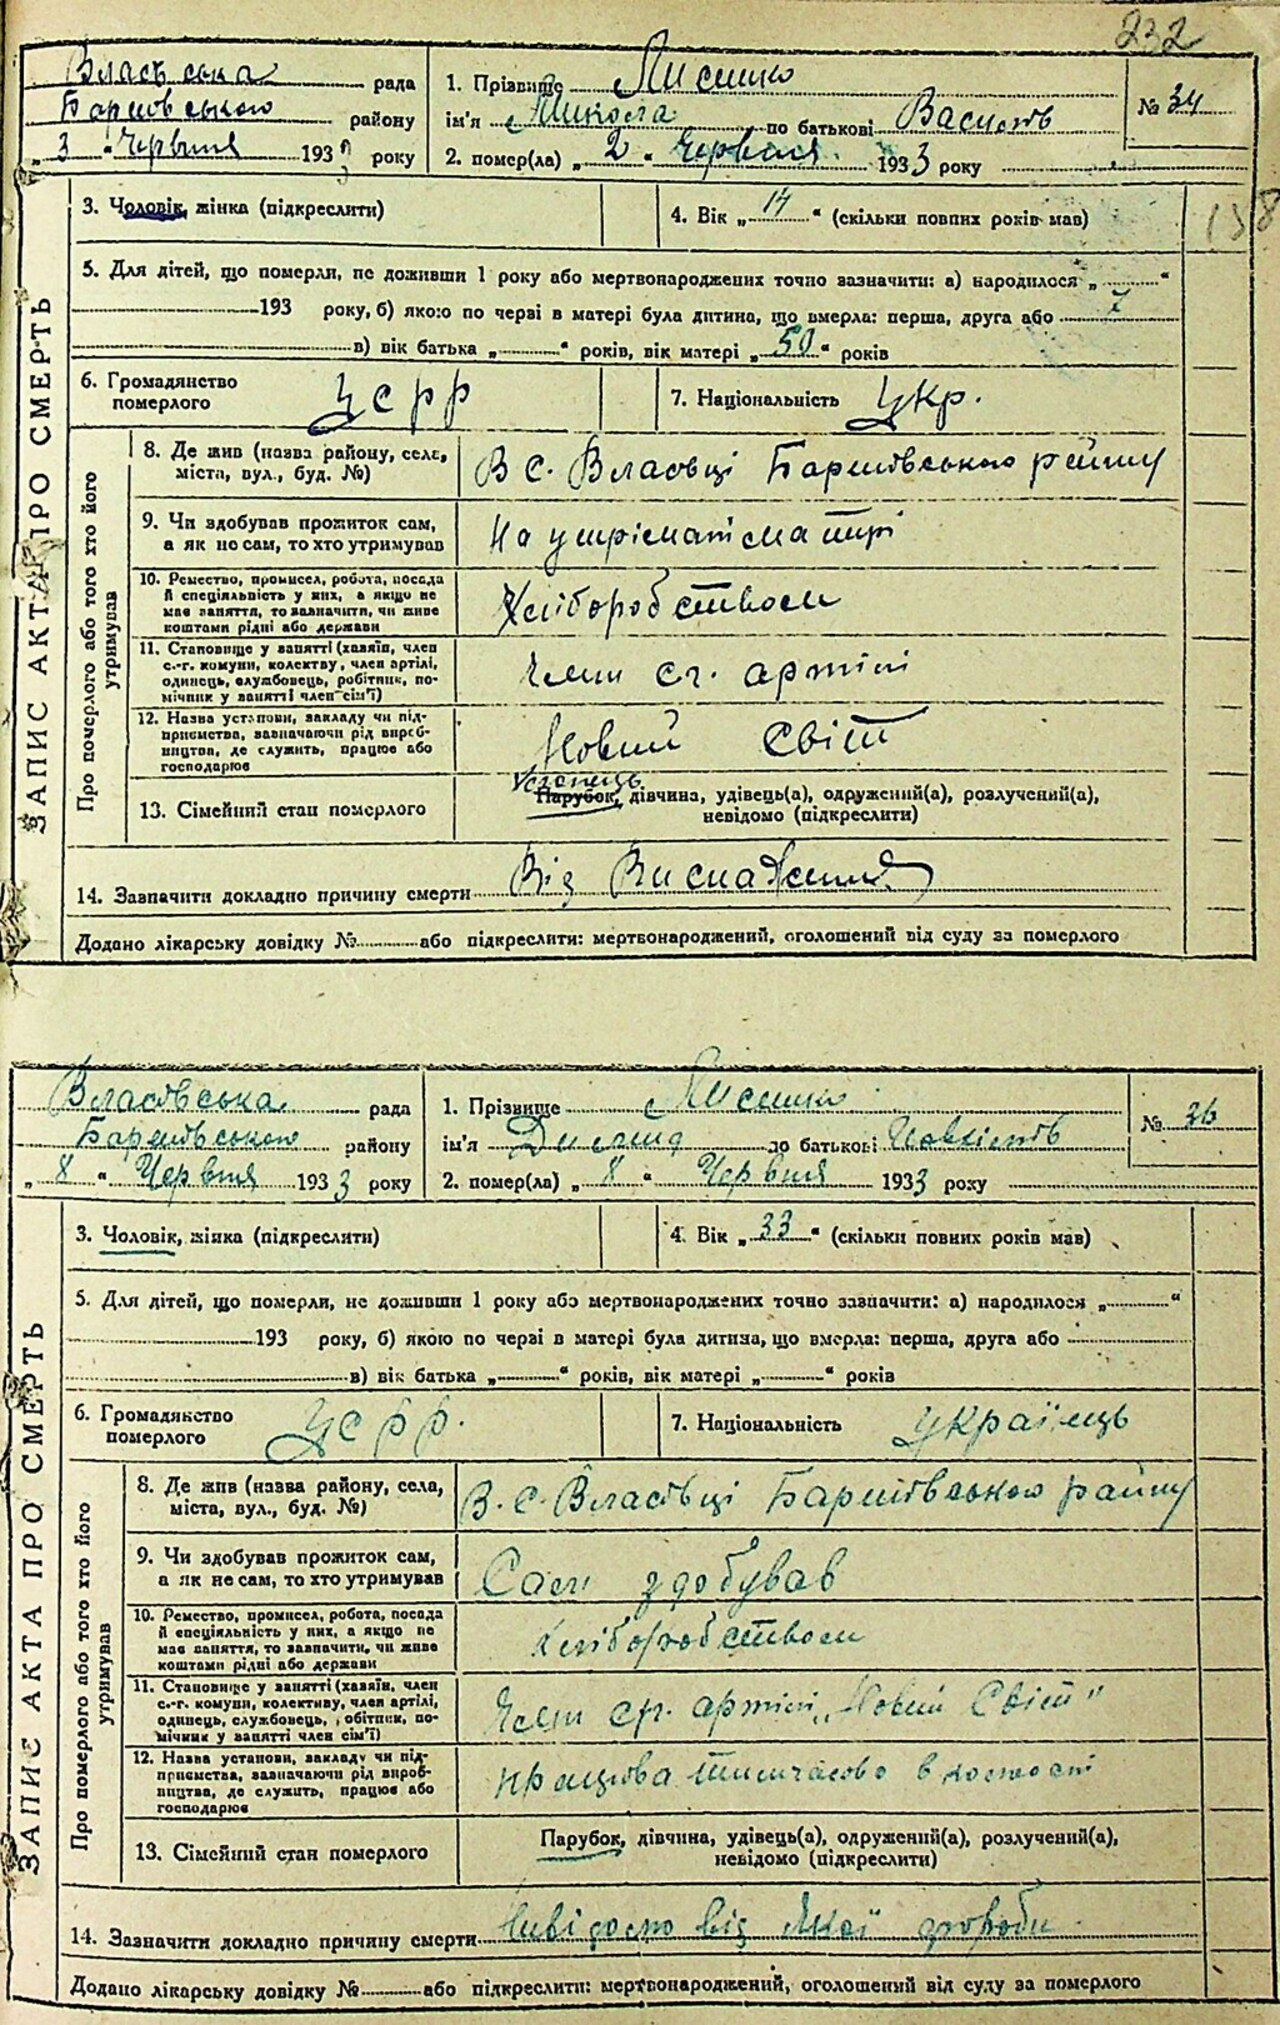 232
Власівська рада
Баришівського району
„ 3 “ Червня 1933 року
1. Прізвище Лисенко
ім'я Микола по батькові Васильов
2. помер(ла) „ 2 “ Червня 1933 року
№ 34
3. Чоловік, жінка (підкреслити)
4. Вік „ 14 “ (скільки повних років мав)
158
5. Для дітей, що померли, не доживши 1 року або мертвонароджених точно зазначити: а) народилося „ “
193 року, б) якою по черзі в матері була дитина, що вмерла: перша, друга або 7
в) вік батька „ “ років, вік матері „ 50 “ років
6. Громадянство
померлого
УСРР
7. Національність Укр.
ЗАПИС АКТА ПРО СМЕРТЬ
Про померлого або того хто його
утримував
8. Де жив (назва району, села,
міста, вул., буд. №)
В С. Власовці Баришівського району
9. Чи здобував прожиток сам,
а як не сам, то хто утримував
На утрімані матирі
10. Ремество, промисел, робота, посада
й спеціяльність у них, а якщо не
має заняття, то зазначити, чи живе
коштами рідні або держави
Хліборобством
11. Становище у занятті (хазяїн, член
с.-г. комуни, колективу, член артілі,
одинець, службовець, робітник, по-
мічник у занятті член сім'ї)
Член сг. артілі
12. Назва установи, закладу чи під-
приємства, зазначаючи рід вироб-
ництва, де служить, працює або
господарює
Новий Світ
13. Сімейний стан померлого
Хлопець
Парубок, дівчина, удівець(а), одружений(а), розлучений(а),
невідомо (підкреслити)
14. Зазначити докладно причину смерти Від Виснаження
Додано лікарську довідку № або підкреслити: мертвонароджений, оголошений від суду за померлого
Власівська рада
Баришівського району
„ 8 “ Червня 1933 року
1. Прізвище Лисенко
ім'я Демид по батькові
2. помер(ла) „ 8 “ Червня 1933 року
№ 36
3. Чоловік, жінка (підкреслити)
4. Вік „ 33 “ (скільки повних років мав)
5. Для дітей, що померли, не доживши 1 року або мертвонароджених точно зазначити: а) народилося „ “
193 року, б) якою по черзі в матері була дитина, що вмерла: перша, друга або
в) вік батька „ “ років, вік матері „ “ років
6. Громадянство
померлого
УСРР.
7. Національність українць
ЗАПИС АКТА ПРО СМЕРТЬ
Про померлого або того хто його
утримував
8. Де жив (назва району, села,
міста, вул., буд. №)
В. С. Власівці Баришівського району
9. Чи здобував прожиток сам,
а як не сам, то хто утримував
Сам здобував
10. Ремество, промисел, робота, посада
й спеціяльність у них, а якщо не
має заняття, то зазначити, чи живе
коштами рідні або держави
хліборобством
11. Становище у занятті (хазяїн, член
с.-г. комуни, колективу, член артілі,
одинець, службовець, робітник, по-
мічник у занятті член сім'ї)
Член сг. артілі „Новий Світ"
12. Назва установи, закладу чи під-
приємства, зазначаючи рід вироб-
ництва, де служить, працює або
господарює
працюва тимчасово в
13. Сімейний стан померлого
Парубок, дівчина, удівець(а), одружений(а), розлучений(а),
невідомо (підкреслити)
14. Зазначити докладно причину смерти Невідомо від якої хвороби
Додано лікарську довідку № або підкреслити: мертвонароджений, оголошений від суду за померлого